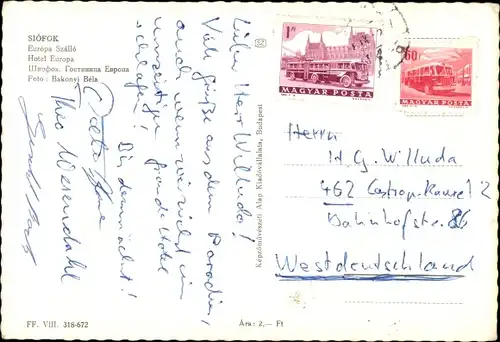 SIÓFOK
Európa Szálló
Hotel Europa
Шиофок. Гостиница Европа
Foto: Bakonyi Béla
Lieber Herr Willuda!
Viele Grüße aus dem Paradies,
auch wenn wir nicht im
Grande Hotel
schlafen! Bis demnächst!
Theo Wiesendahl
Képzőművészeti Alap Kiadóvállalata, Budapest
1 Ft
MAGYAR POSTA
60f
MAGYAR POSTA
Herrn
H. G. Willuda
462 Castrop-Rauxel 2
Bahnhofstr. 86
Westdeutschland
FF. VIII. 318-672
Ára: 2,— Ft